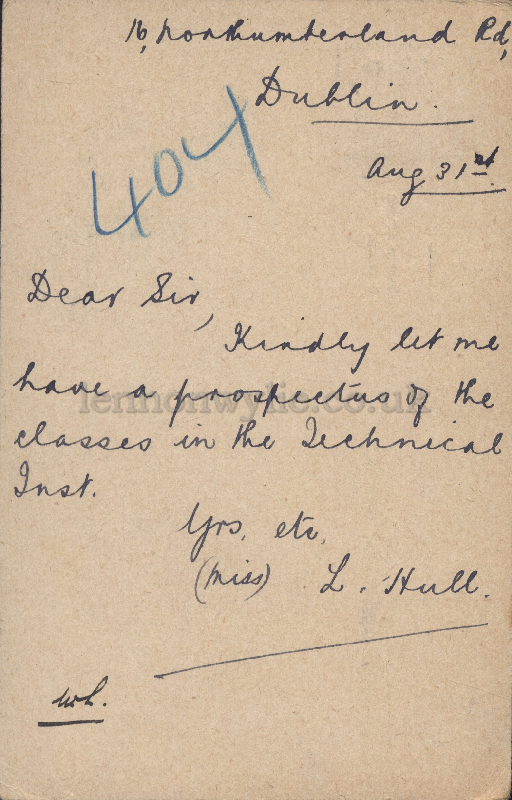 16, Northumberland Rd,
Dublin.
Aug 31st.
404
Dear Sir,
Kindly let me
have a prospectus of the
lennonwylie.co.uk
classes in the Technical
Inst.
Yrs. etc.
(Miss) L. Hull.